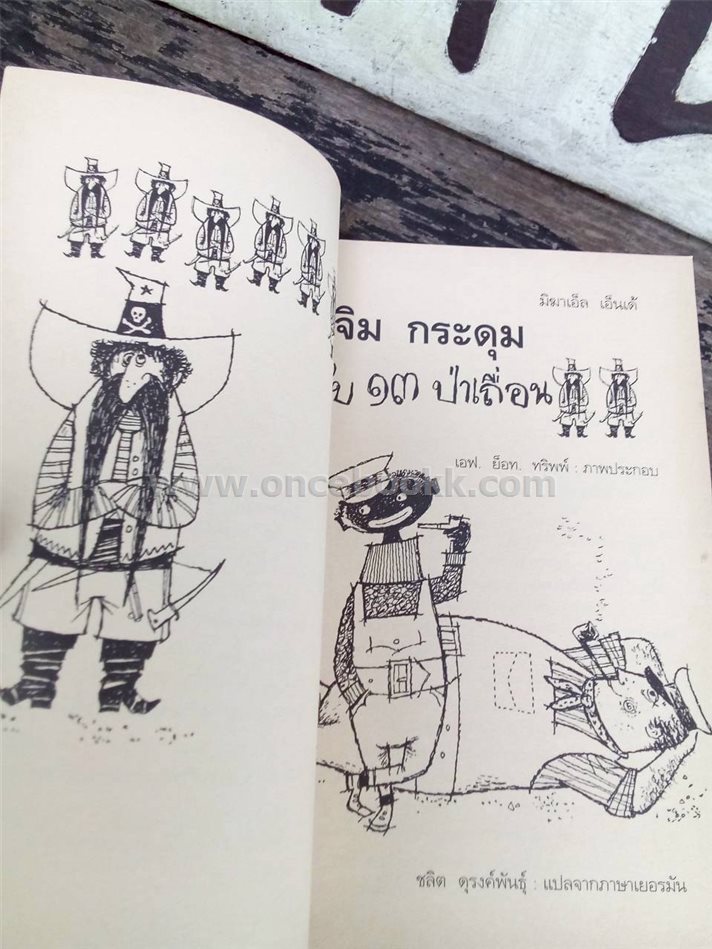 มิฆาเอ็ล เอ็นเด้
จิม กระดุม
๑๓ ป่าเถื่อน
เอฟ. ย็อท. ทริพพ์ : ภาพประกอบ
www.oncebookk.com
ชลิต ดุรงค์พันธุ์ : แปลจากภาษาเยอรมัน